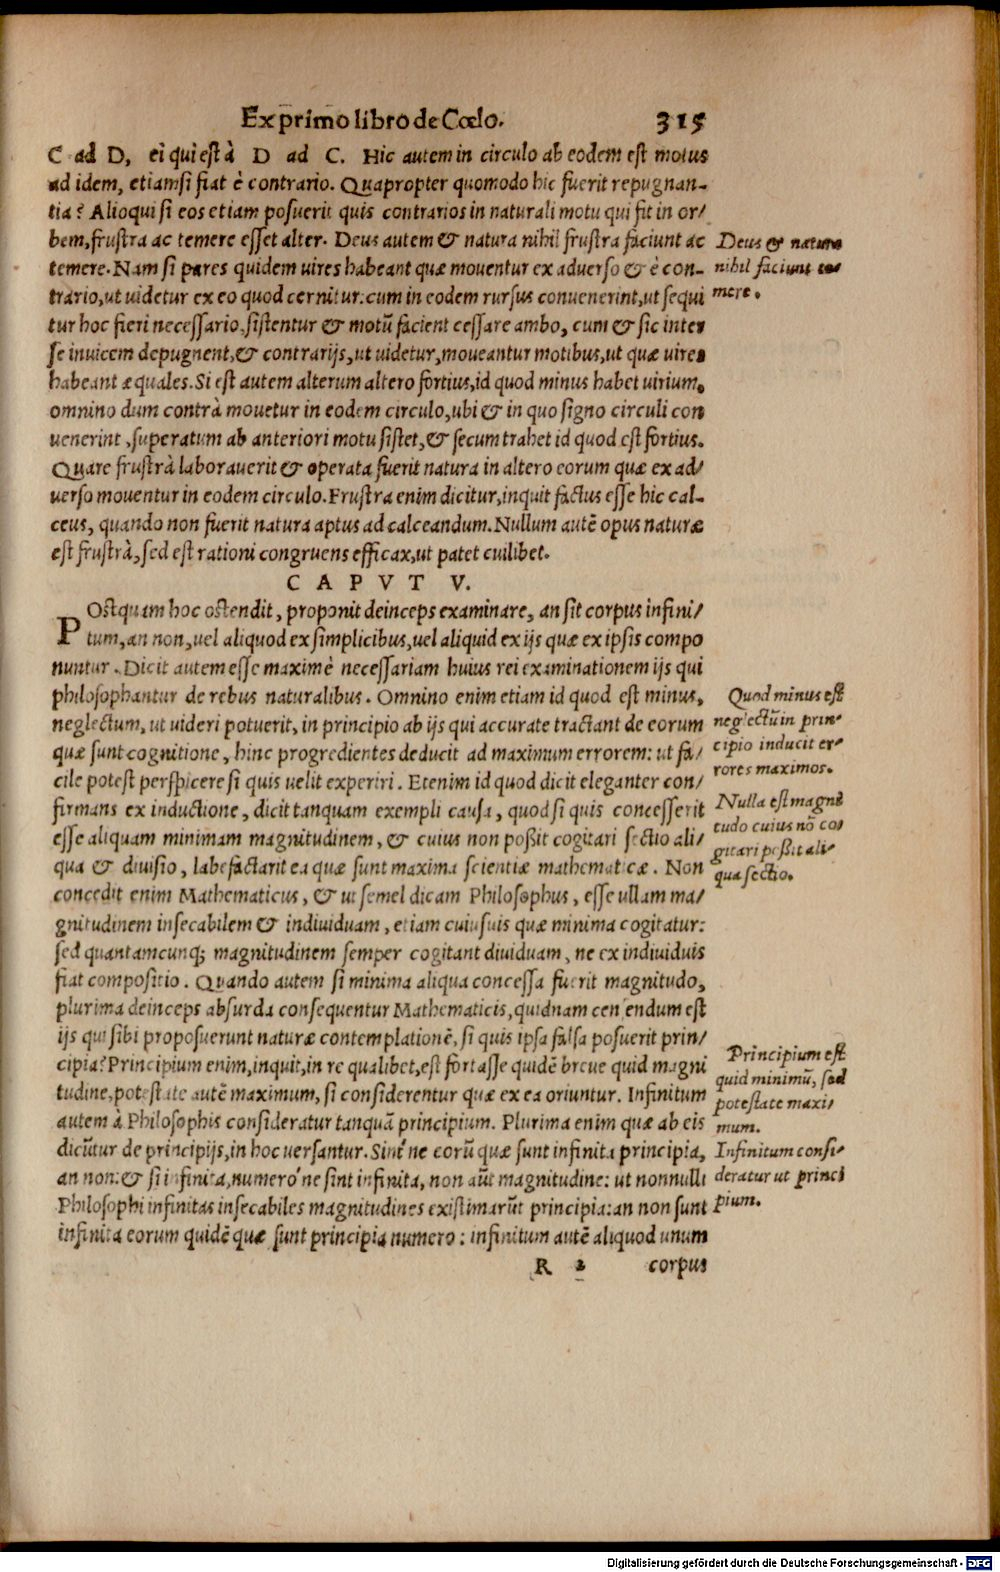 Ex primo libro de Cœlo. 315
C ad D, ei qui est à D ad C. Hic autem in circulo ab eodem est motus
ad idem, etiamsi fiat è contrario. Quapropter quomodo hic fuerit repugnan-
tia? Alioqui si eos etiam posuerit quis contrarios in naturali motu qui fit in or/
bem, frustra ac temere esset alter. Deus autem & natura nihil frustra faciunt ac
temere. Nam si pares quidem uires habeant quæ mouentur ex aduerso & è con-
trario, ut uidetur ex eo quod cernitur: cum in eodem rursus conuenerint, ut sequi
tur hoc fieri necessario, sistentur & motū facient cessare ambo, cum & sic inter
se inuicem depugnent, & contrarijs, ut uidetur, moueantur motibus, ut quæ uires
habeant æquales. Si est autem alterum altero fortius, id quod minus habet uirium,
omnino dum contrà mouetur in eodem circulo, ubi & in quo signo circuli con
uenerint, superatum ab anteriori motu sistet, & secum trahet id quod est fortius.
Quare frustrà laborauerit & operata fuerit natura in altero eorum quæ ex ad/
uerso mouentur in eodem circulo. Frustra enim dicitur, inquit factus esse hic cal-
ceus, quando non fuerit natura aptus ad calceandum. Nullum autē opus naturæ
est frustrà, sed est rationi congruens efficax, ut patet cuilibet.
Deus & natura
nihil faciunt te-
mere.
CAPVT V.
POstquam hoc ostendit, proponit deinceps examinare, an sit corpus infini/
tum, an non, uel aliquod ex simplicibus, uel aliquid ex ijs quæ ex ipsis compo
nuntur. Dicit autem esse maximè necessariam huius rei examinationem ijs qui
philosophantur de rebus naturalibus. Omnino enim etiam id quod est minus,
neglectum, ut uideri potuerit, in principio ab ijs qui accurate tractant de eorum
quæ sunt cognitione, hinc progredientes deducit ad maximum errorem: ut fa/
cile potest perspicere si quis uelit experiri. Etenim id quod dicit eleganter con/
firmans ex inductione, dicit tanquam exempli causa, quod si quis concesserit
esse aliquam minimam magnitudinem, & cuius non poßit cogitari sectio ali/
qua & diuisio, labefactarit ea quæ sunt maxima scientiæ mathematicæ. Non
concedit enim Mathematicus, & ut semel dicam Philosophus, esse ullam ma/
gnitudinem insecabilem & indiuiduam, etiam cuiusuis quæ minima cogitatur:
sed quantamcunq; magnitudinem semper cogitant diuiduam, ne ex indiuiduis
fiat compositio. Quando autem si minima aliqua concessa fuerit magnitudo,
plurima deinceps absurda consequentur Mathematicis, quidnam censendum est
ijs qui sibi proposuerunt naturæ contemplationē, si quis ipsa falsa posuerit prin/
cipia? Principium enim, inquit, in re qualibet, est fortasse quidē breue quid magni
tudine, potestate autē maximum, si considerentur quæ ex ea oriuntur. Infinitum
autem à Philosophis consideratur tanquā principium. Plurima enim quæ ab eis
dicūtur de principijs, in hoc uersantur. Sint' ne eorū quæ sunt infinita principia,
an non: & si infinita, numero' ne sint infinita, non aūt magnitudine: ut nonnulli
Philosophi infinitas insecabiles magnitudines existimarūt principia: an non sunt
infinita eorum quidē quæ sunt principia numero: infinitum autē aliquod unum
Quod minus est
neglectū in prin-
cipio inducit er-
rores maximos.
Nulla est magni
tudo cuius nō co/
gitari poßit ali-
qua sectio.
Principium est
quid minimū, sed
potestate maxi/
mum.
Infinitum consi-
deratur ut princi
pium.
R 2 corpus
Digitalisierung gefördert durch die Deutsche Forschungsgemeinschaft - DFG